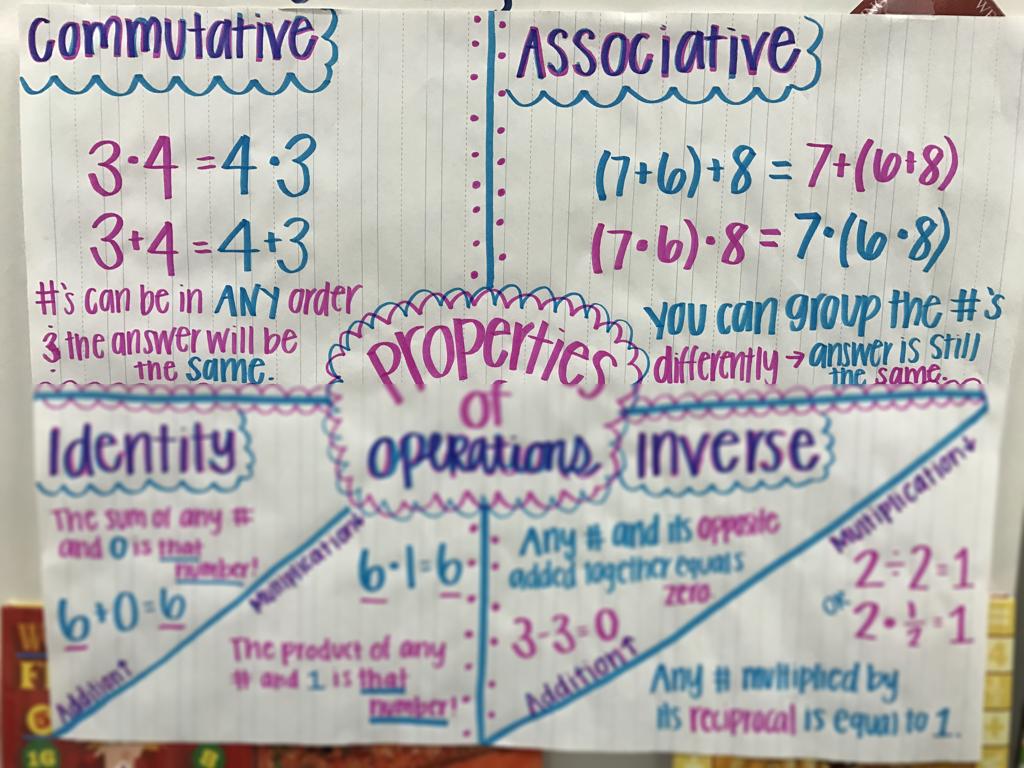 Commutative
3·4 = 4·3
3+4 = 4+3
#'s can be in ANY order
& the answer will be
the same.
Associative
(7+6)+8 = 7+(6+8)
(7·6)·8 = 7·(6·8)
you can group the #'s
differently → answer is still
the same.
Properties
of
Operations
Identity
The sum of any #
and 0 is that
number!
6+0=6
Addition↑
Multiplication↓
6·1=6
The product of any
# and 1 is that
number!
Inverse
Any # and its opposite
added together equals
zero.
3-3=0
Addition↑
Multiplication↓
2÷2=1
or 2·1/2=1
Any # multiplied by
its reciprocal is equal to 1.
16
8
4